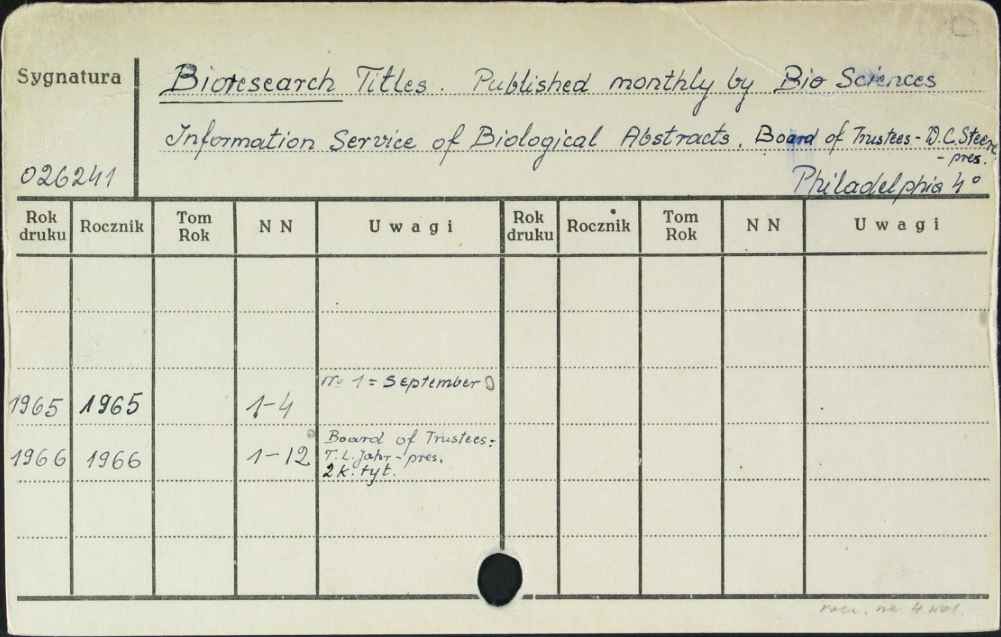 Sygnatura
Bioresearch Titles. Published monthly by Bio Sciences
Information Service of Biological Abstracts. Board of Trustees - W.C. Steere
- pres.
026241
Philadelphia 4°
Rok druku Rocznik Tom Rok NN Uwagi Rok druku Rocznik Tom Rok NN Uwagi
nr 1 = September
1965 1965 1-4
Board of Trustees:
1966 1966 1-12 T.L. Jahr - pres.
2 k. tyt.